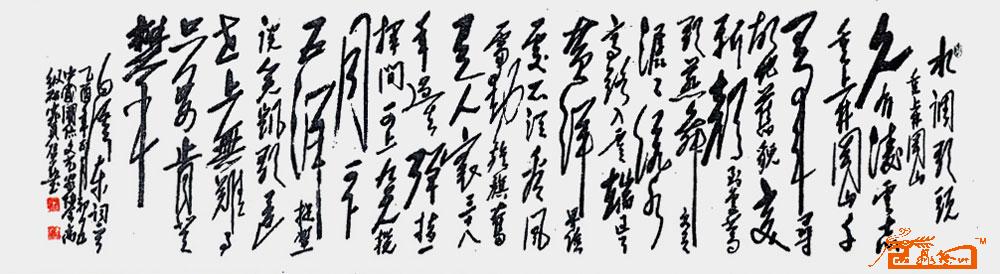 水调歌头
重上井冈山
久有凌云志
重上井冈山千
里来寻
故地旧貌变
新颜到处莺
歌燕舞更有
潺潺流水
高路入云端过了
黄洋界险
处不须看风
雷动旌旗奋
是人寰三十八
年过去弹指一
挥间可上九天揽
月可下
五洋捉鳖
谈笑凯歌还
世上无难事
只要肯登
攀
毛泽东词